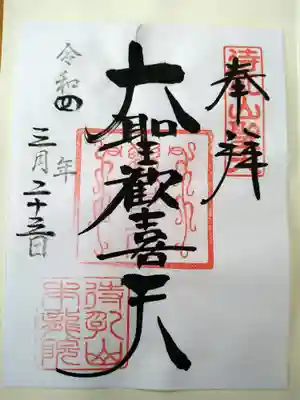 奉拝
大聖歓喜天
令和四年
三月二十三日
待乳山
本龍院